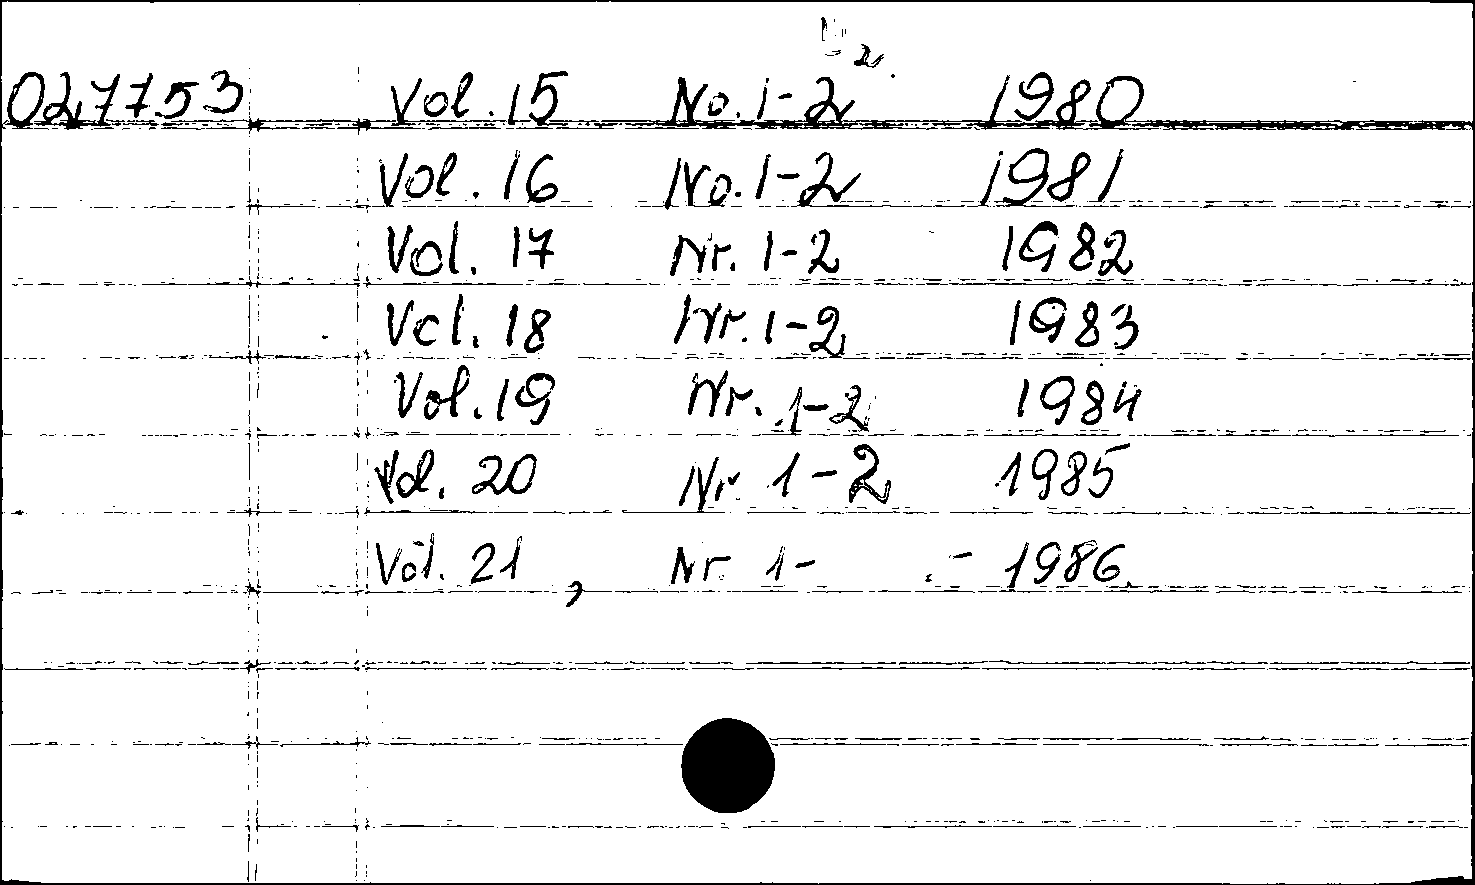 2
027753 Vol. 15 No. 1-2 1980
Vol. 16 No. 1-2 1981
Vol. 17 Nr. 1-2 1982
Vol. 18 Nr. 1-2 1983
Vol. 19 Nr. 1-2 1984
Vol. 20 Nr 1-2 1985
Vol. 21, Nr. 1- - 1986.